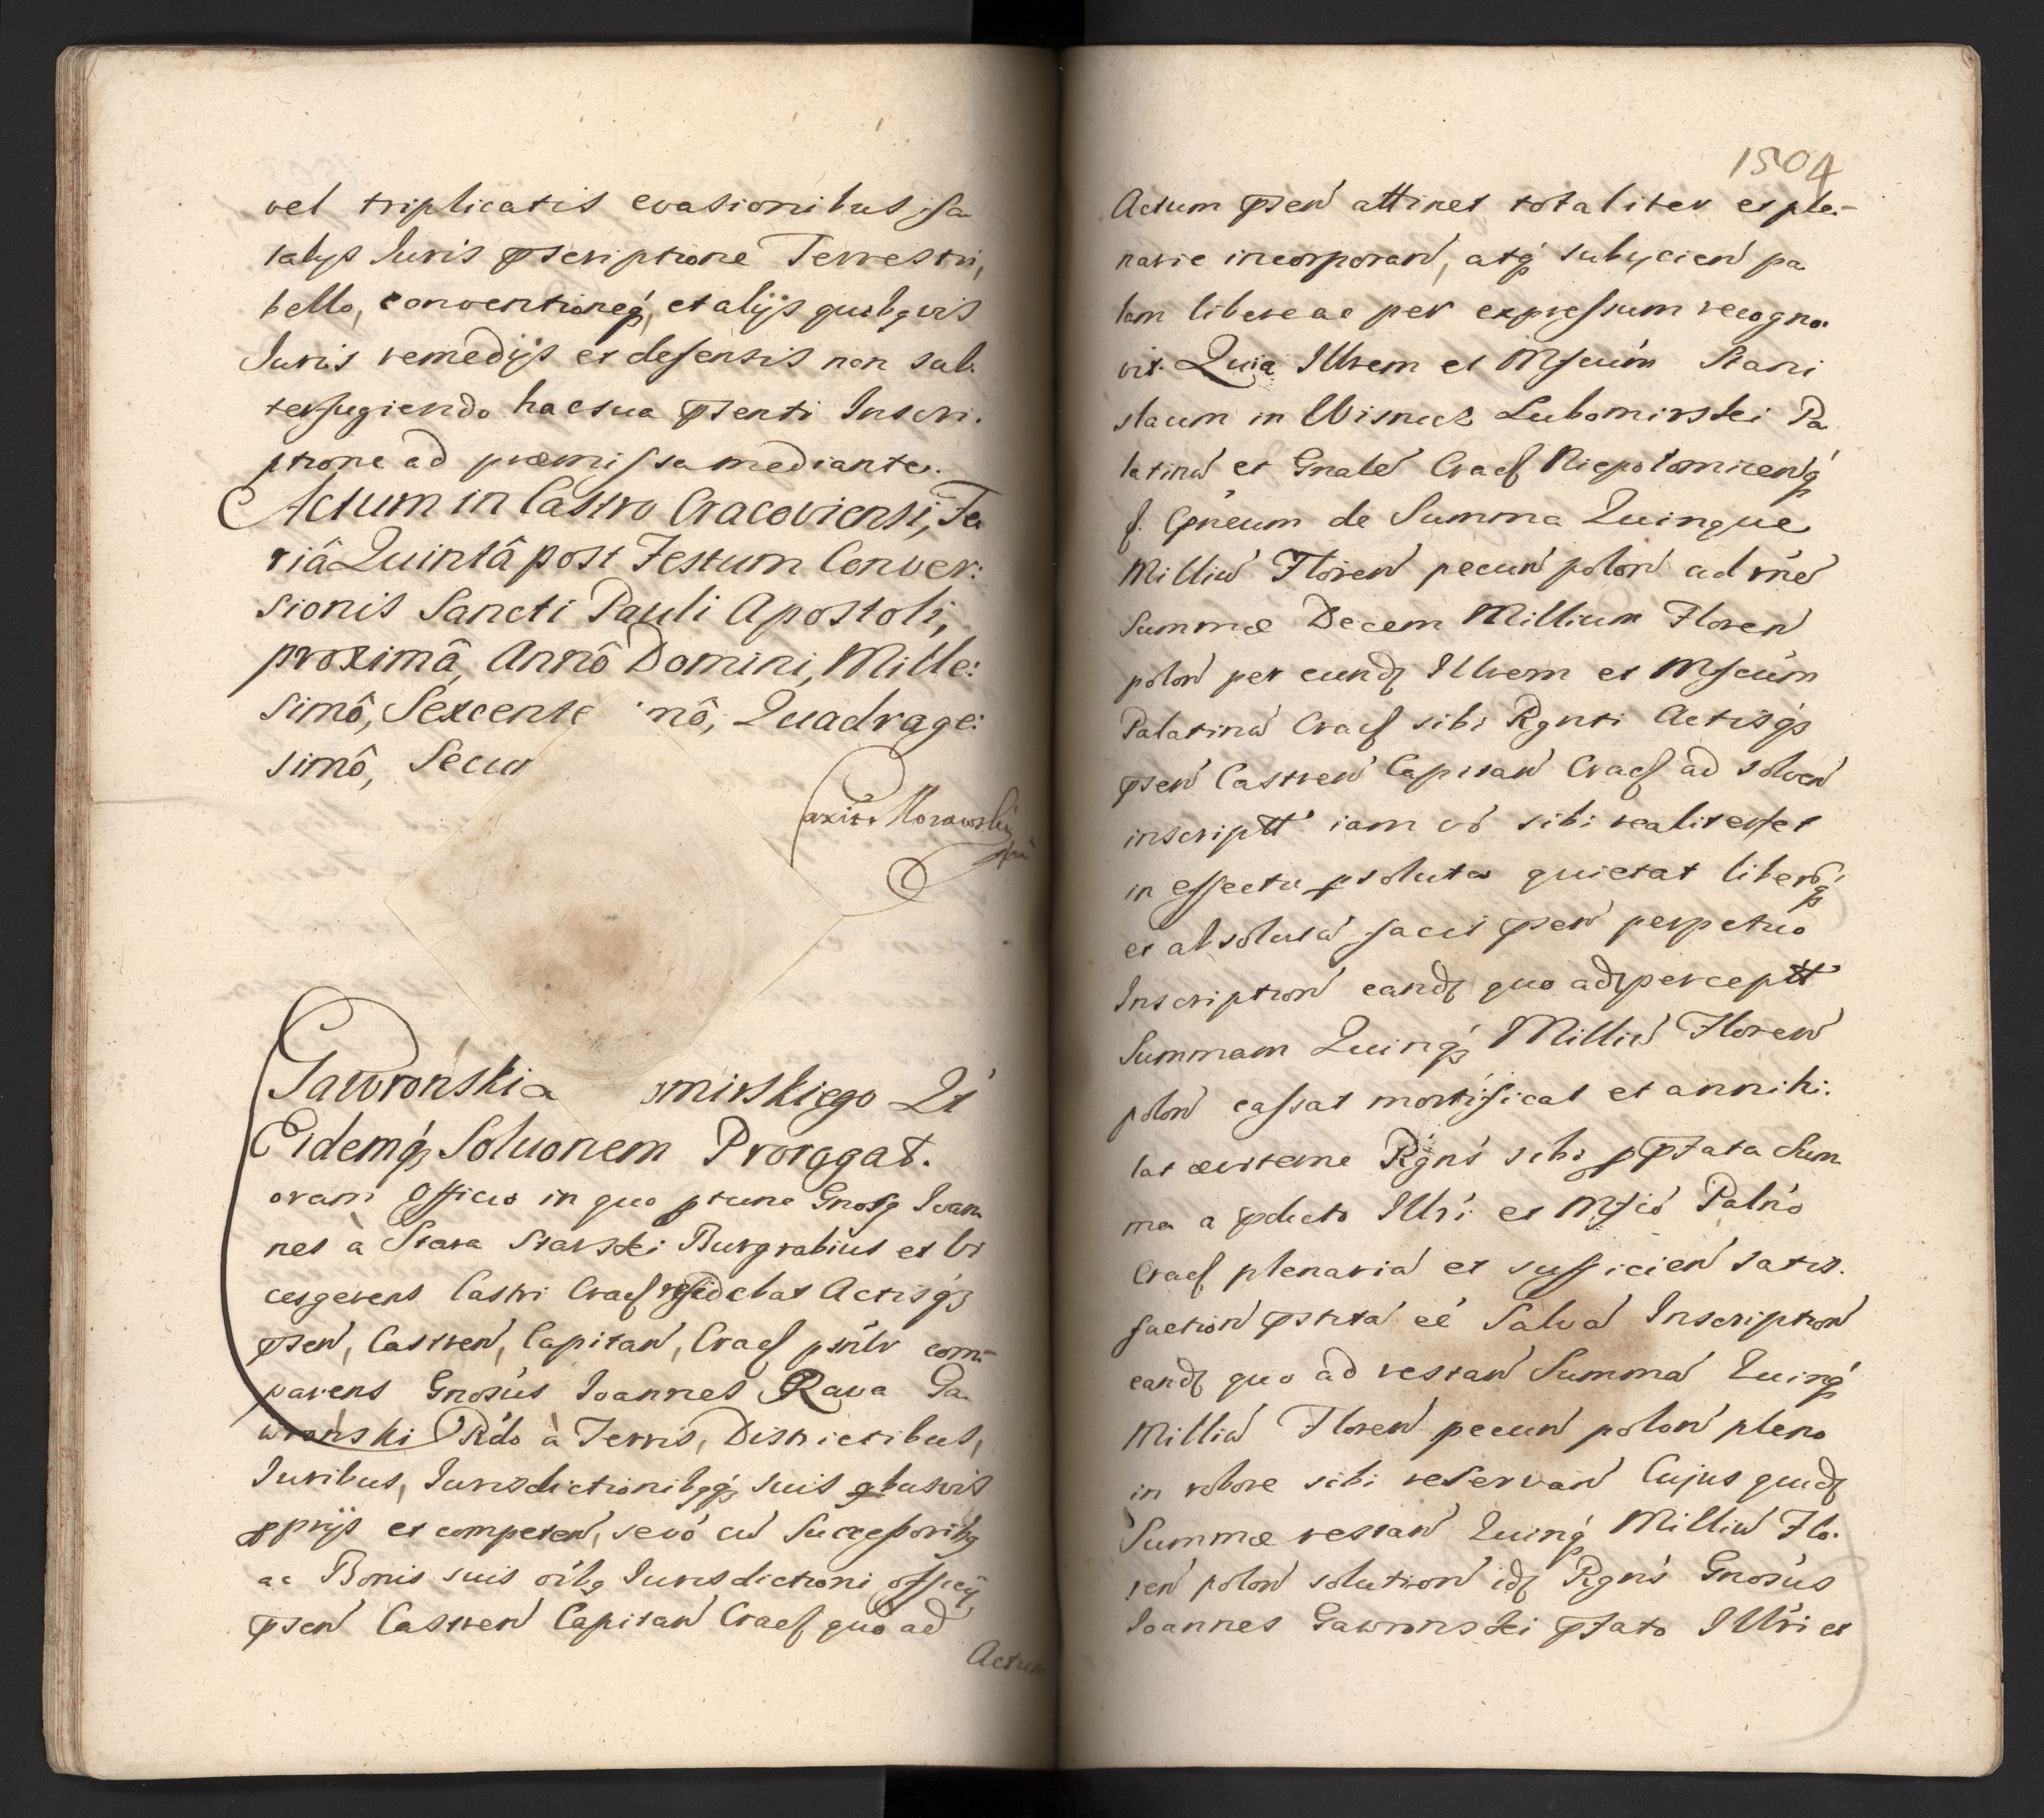 vel triplicatis evasionibus, fa
talys Iuris pscriptione Terrestri,
bello, conventioneq́, et alijs quibqvis
Iuris remedijs et defensis non sub.
terfugiendo hac sua psenti Inscri.
ptione ad præmissa mediante.
Actum in Castro Cracoviensi, Fe
riâ Quintâ post Festum Conver:
sionis Sancti Pauli Apostoli,
proximâ, Annô Domini, Mille:
simô, Sexcente mô, Quadrage:
simô, Secun
Morawski
Gawrońskia omirskiego Qt
Eidemq́ Soluonem Prorogat.
oram Officio in quo ptunc Gnosq Ioan
nes à Stara Starski Burgrabius et Vi
cesgerens Castri Cracſ residebat Actisq́
psen̄, Castren̄, Capitan̄, Cracſ psnlr com-
parens Gnosus Ioannes Rava Ga
wroński Rdo à Terris, Districtibus,
Iuribus, Iurisdictionibqq́ suis qbusvis
pprijs et competen̄, sevó cū Successoribq
ac Bonis suis oibq Iurisdictioni officij
psen̄ Castren̄ Capitan̄ Cracſ quo ad
Actum
1504
Actum psen̄ attinet totaliter et ple-
narie incorporan̄, atq́ subycien̄ pa
lam libere ac per expressum recogno.
vit. Quia Illrem et Mſcúm Stani
slaum in Wisnicz Lubomirski Pa
latinū et Gnalē Cracſ Niepolomicenq́
ſ. Cpneum de Summa Quinque
Milliū Floren̄ pecun̄ polon̄ ad rnē
Summæ Decem Millium Floren̄
polon̄ per eundꝫ Illrem et Mſcúm
Palatinū Cracſ sibi Rgnti Actisq́
psen̄ Castren̄ Capitan̄ Cracſ ad solven̄
inscriptt̄ iam vó sibi realiter et
in effectu psoluta quietat liberūq́
et absolutū facit psen̄ perpetuo
Inscription̄ eandꝫ quo ad perceptt̄
Summam Quinq́ Milliū Floren̄
polon̄ cassat mortificat et annihi.
lat æviterne Rgnś sibi p ptata Sum
ma a pdicto Illrí et Mſcó Palnó
Cracſ plenariā et sufficien̄ satis.
faction̄ pstitā eé Salvā Inscription̄
eandꝫ quo ad restan̄ Summā Quinq́
Milliū Floren̄ pecun̄ polon̄ pleno
in robore sibi reservan̄ Cujus quidꝫ
Summæ restan̄ Quinq́ Milliū Flo.
ren̄ polon̄ solution̄ idꝫ Rgnś Gnosus
Ioannes Gawronski ptato Illri et